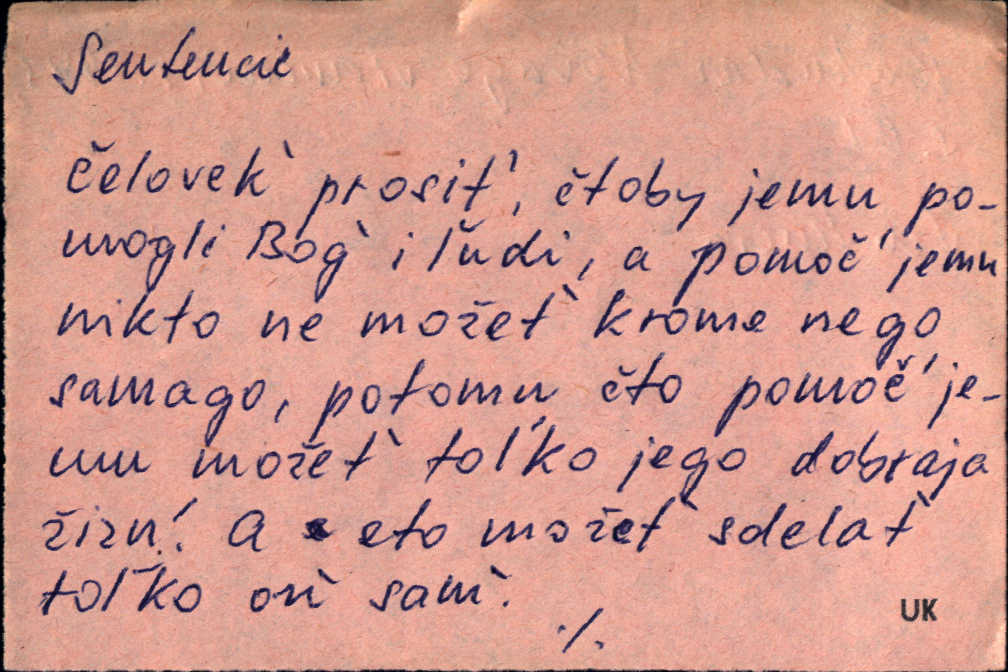 Sentencie
Čelovek` prosit', čtoby jemu po-
mogli Bog` i ľudi, a pomoč' jemu
nikto ne možet` krome nego
samago, potomu čto pomoč' je-
mu možet` toľko jego dobraja
žizn'. A eto možet` sdelat`
toľko on` sam`.
./.
UK